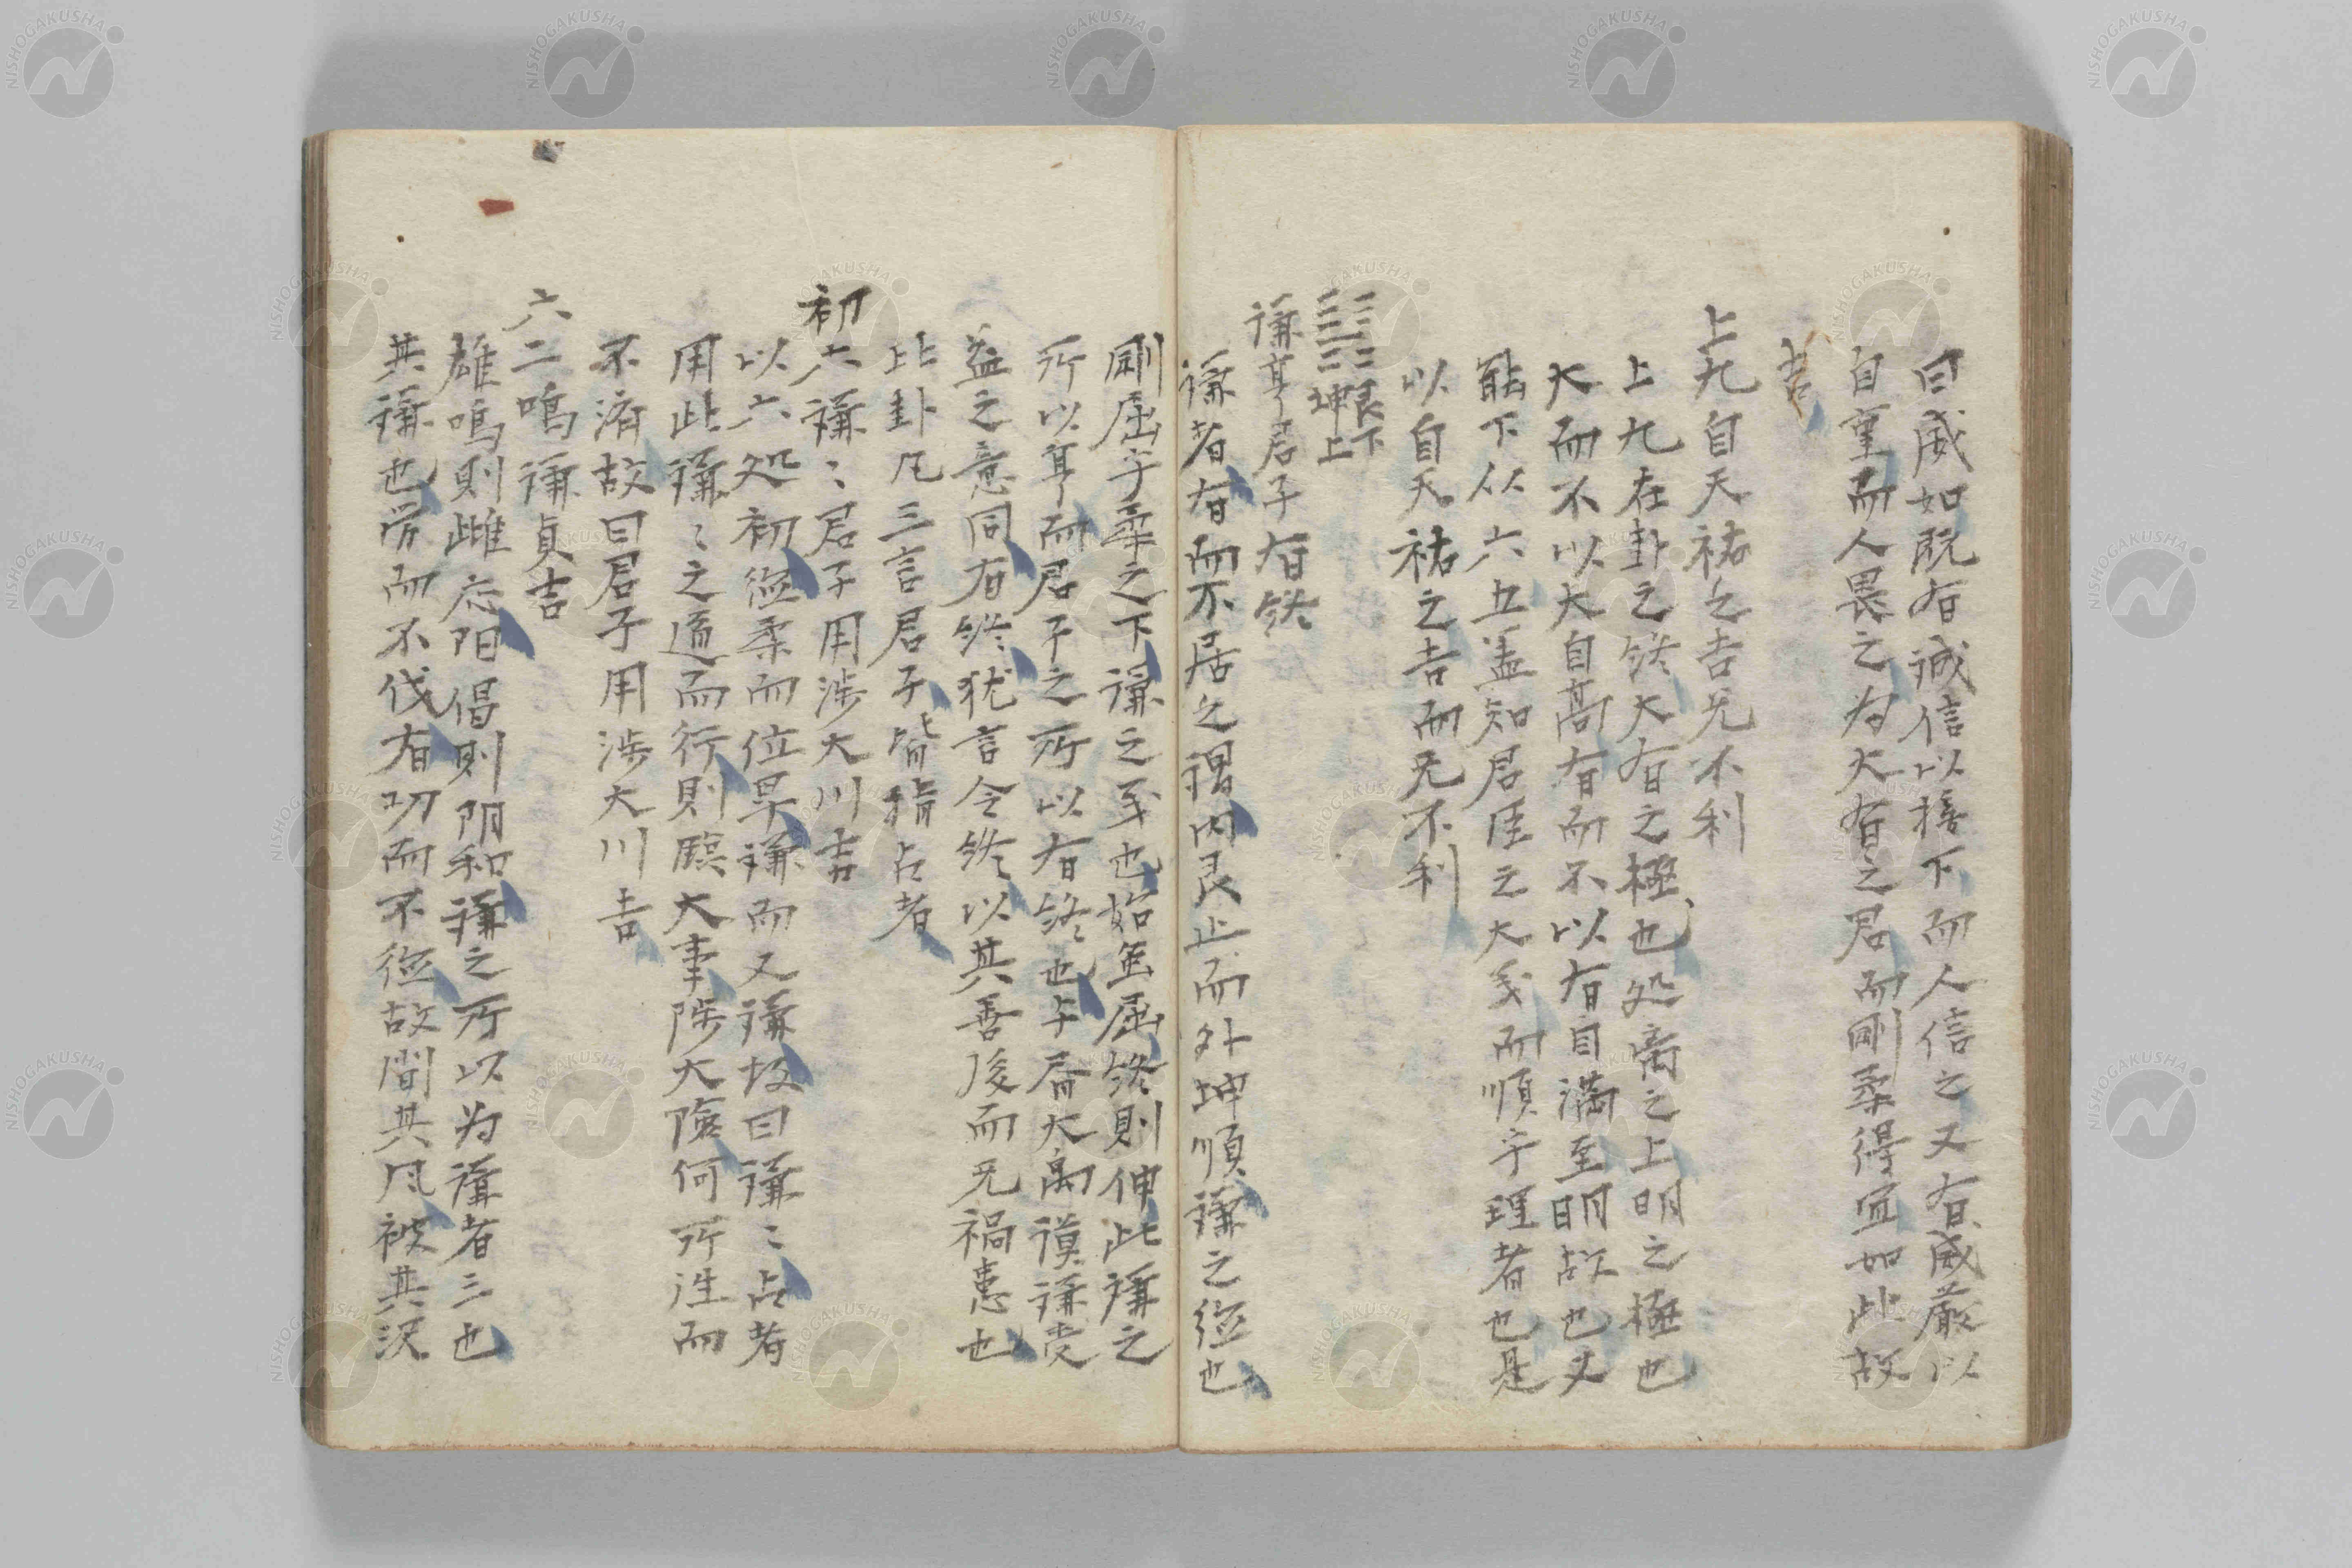 曰威如既有誠信以接下而人信之又有威嚴以
自重而人畏之为大有之君而剛柔得宜如此故
吉
上九自天祐之吉无不利
上九在卦之终大有之極也処离之上明之極也
大而不以大自髙有而不以有自満至明故也又
能下从六五盖知君臣之大义而順乎理者也是
以自天祐之吉而无不利
艮下
坤上
谦亨君子有终
谦者有而不居之謂内艮止而外坤順谦之德也
剛屈乎柔之下谦之至也始虽屈终則伸此谦之
所以亨而君子之所以有终也
益之意同有终犹言令终以其善後而无禍患也
此卦凡三言君子皆指占者
初六谦〻君子用涉大川吉
以六処初德柔而位卑谦而又谦故曰谦〻占者
用此谦〻之道而行則臨大事陟大険何所往而
不済故曰君子用涉大川吉
六二鳴谦貞吉
雄鳴則雌応阳倡則阴和谦之所以为谦者三也
其谦也労而不伐有功而不德故聞其风被其沢
NISHOGAKUSHA